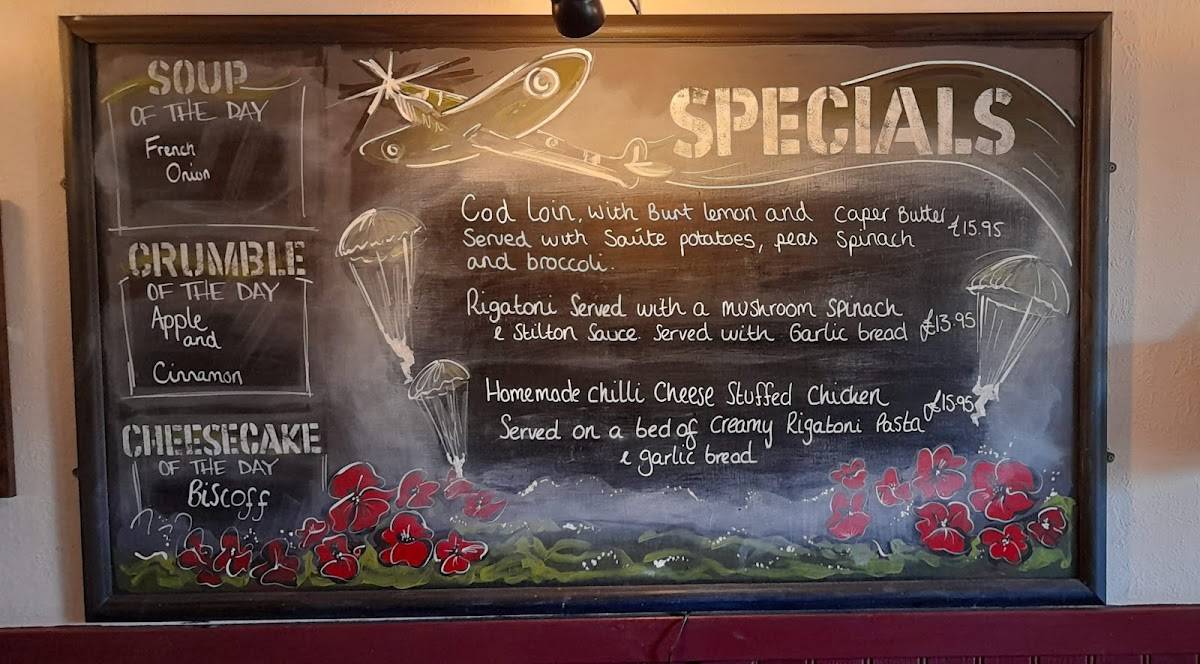 SOUP
OF THE DAY
French
Onion
CRUMBLE
OF THE DAY
Apple
and
Cinnamon
CHEESECAKE
OF THE DAY
Biscoff
SPECIALS
Cod Loin, with Burt lemon and Caper Butter £15.95
Served with Saúte potatoes, peas Spinach
and broccoli.
Rigatoni Served with a mushroom spinach
& Stilton Sauce. Served with Garlic bread £13.95
Homemade chilli Cheese Stuffed Chicken
Served on a bed of creamy Rigatoni Pasta £15.95
& garlic bread